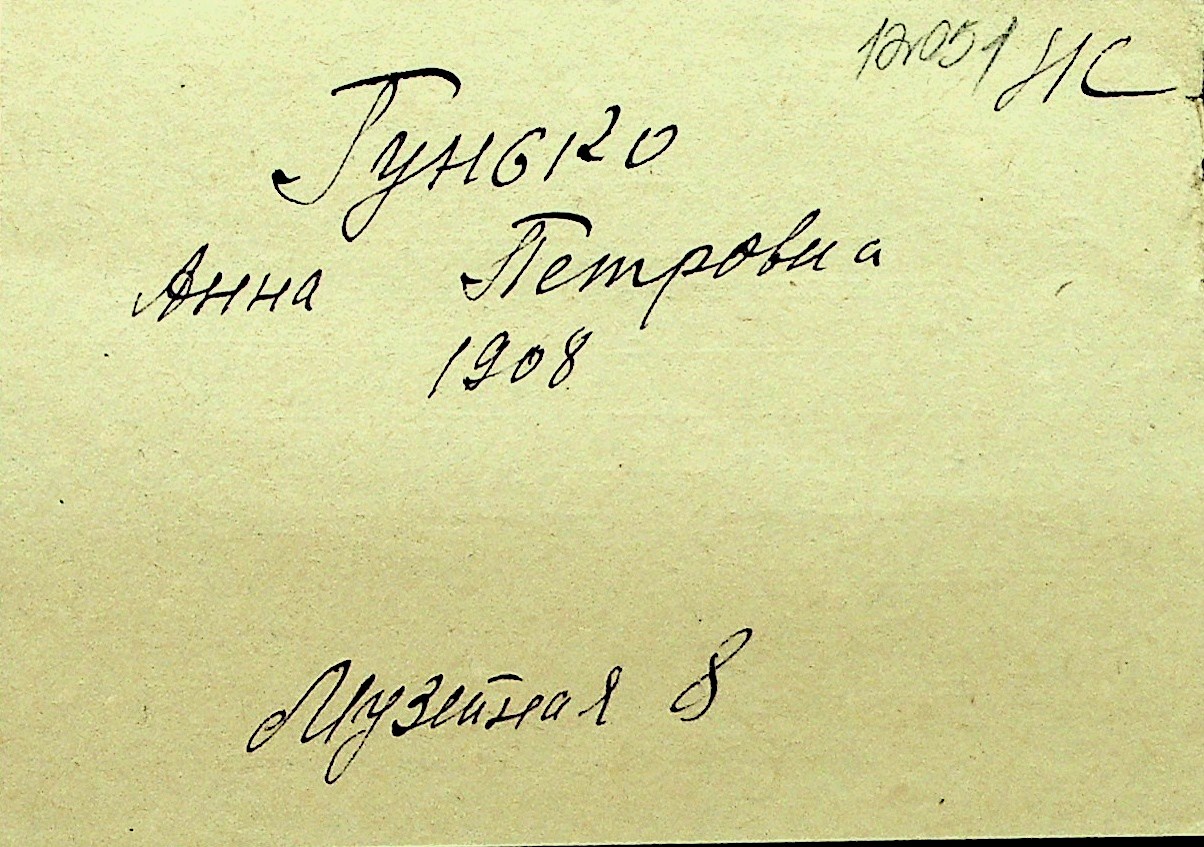 12051 НС
Гунько
Анна Петровна
1908
Музейная 8